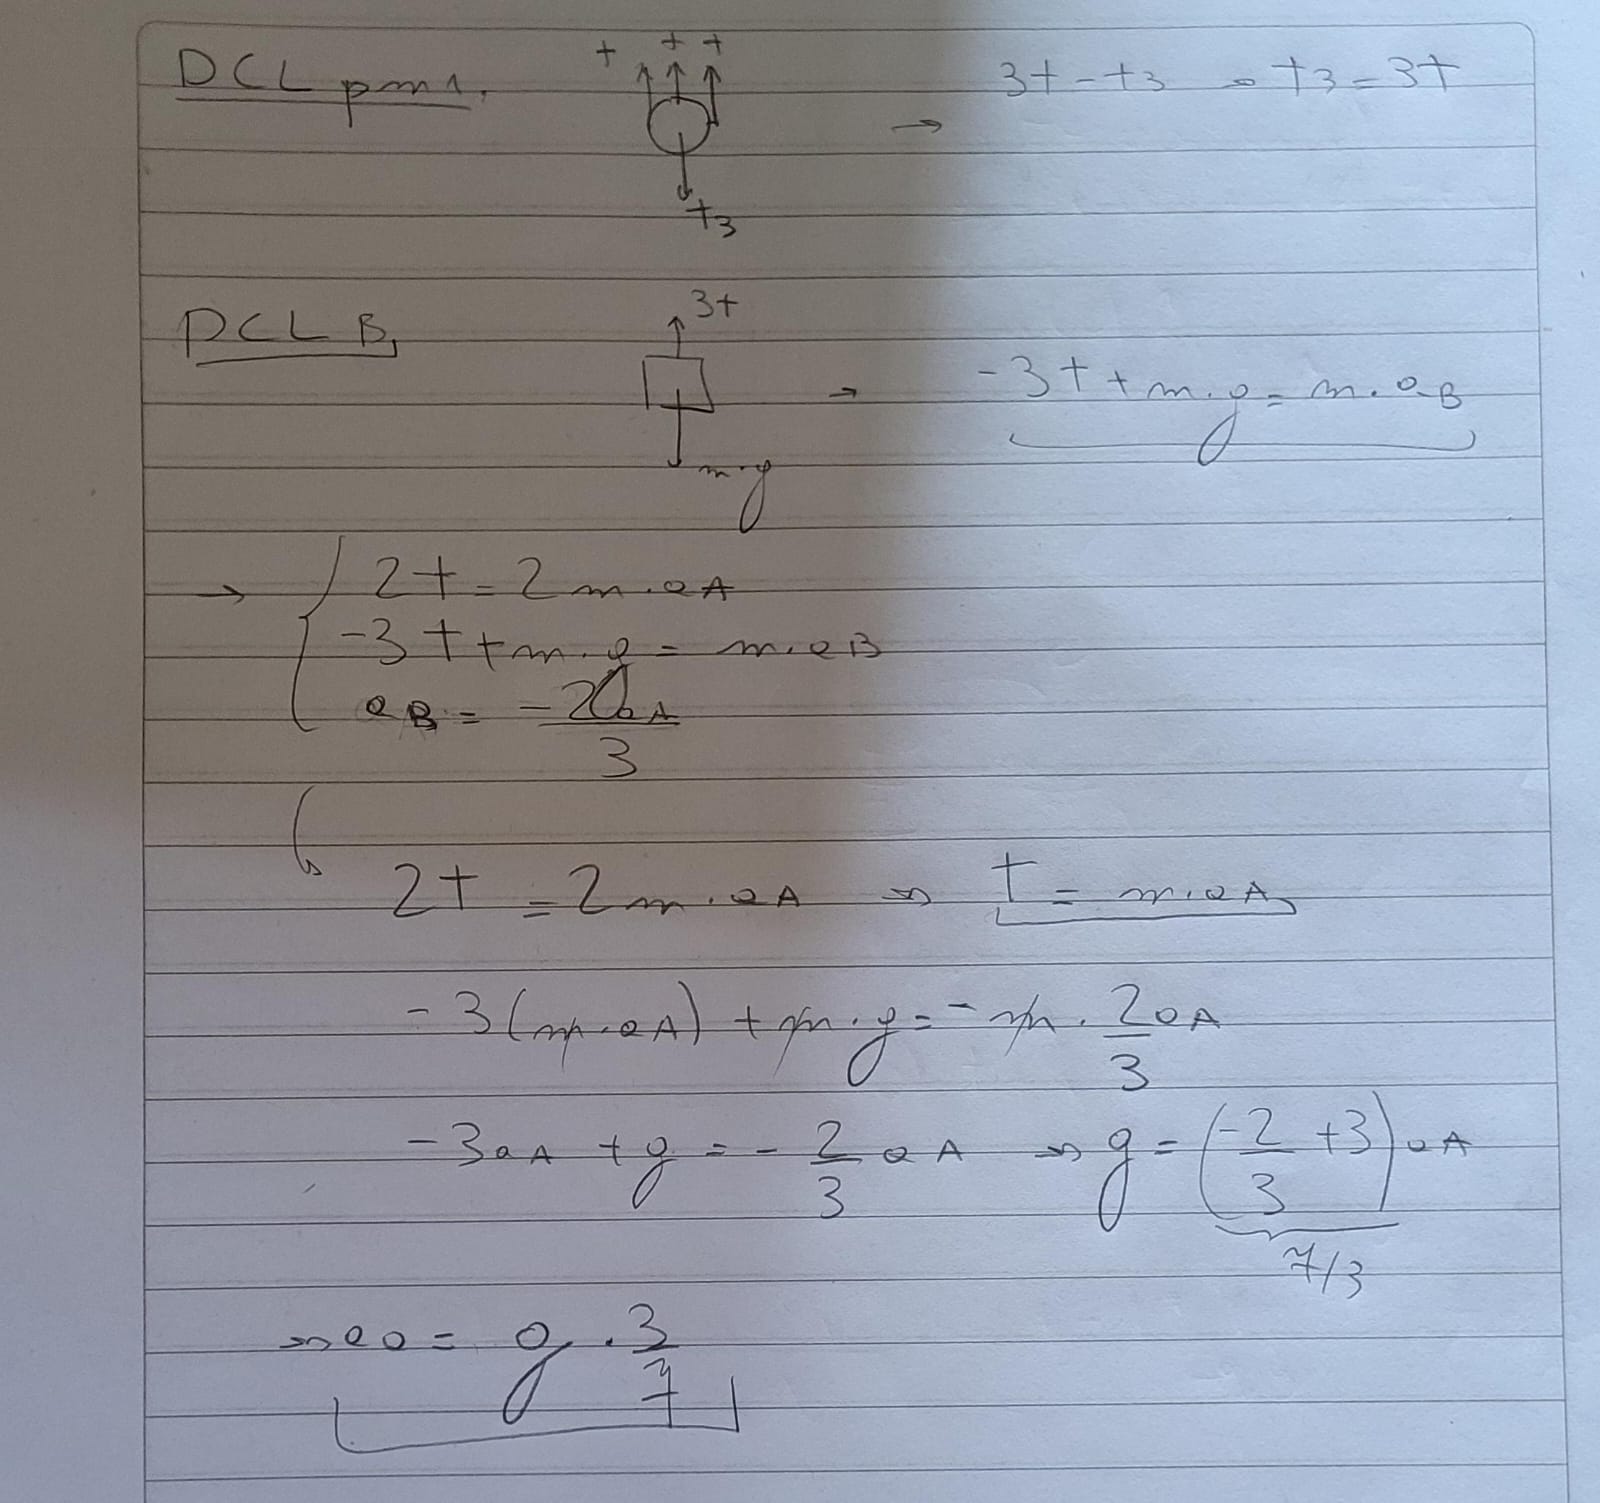 DCL pm1. t t t 3t - t3 → t3 = 3t
→
t3
DCL B 3t
→ -3t + m.g = m.aB
m.g
→ { 2t = 2m.aA
-3t + m.g = m.aB
aB = -2aA/3
2t = 2m.aA ⇒ t = m.aA
-3(m.aA) + m.g = -m.2/3 aA
-3aA + g = -2/3 aA ⇒ g = (-2/3 + 3) aA
7/3
⇒ aa = g.3/7